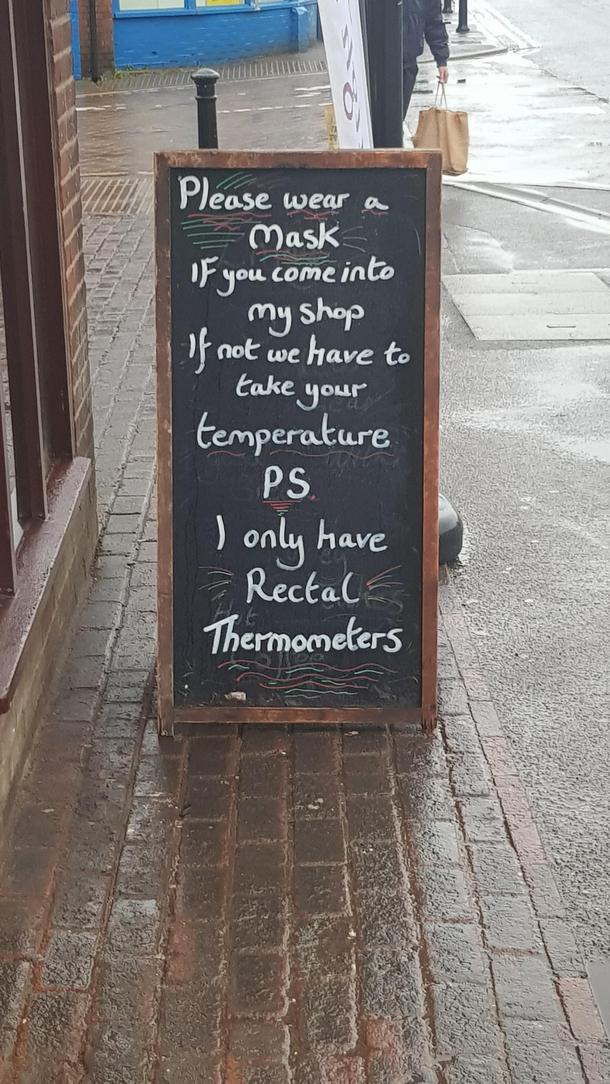 Please wear a
Mask
IF you come into
my shop
If not we have to
take your
temperature
PS.
I only have
Rectal
Thermometers